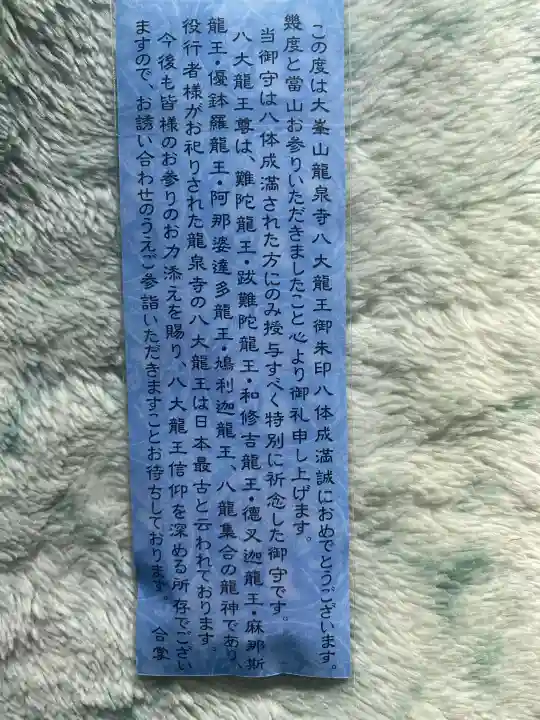 この度は大峯山龍泉寺八大龍王御朱印八体成満誠におめでとうございます。
幾度と當山お参りいただきましたこと心より御礼申し上げます。
当御守は八体成満された方にのみ授与すべく特別に祈念した御守です。
八大龍王尊は、難陀龍王・跋難陀龍王・和修吉龍王・德叉迦龍王・麻那斯
龍王・優鉢羅龍王・阿那婆達多龍王・鳩利迦龍王、八龍集合の龍神であり、
役行者様がお祀りされた龍泉寺の八大龍王は日本最古と云われております。
今後も皆様のお参りのお力添えを賜り、八大龍王信仰を深める所存でござい
ますので、お誘い合わせのうえご参詣いただきますことお待ちしております。 合掌